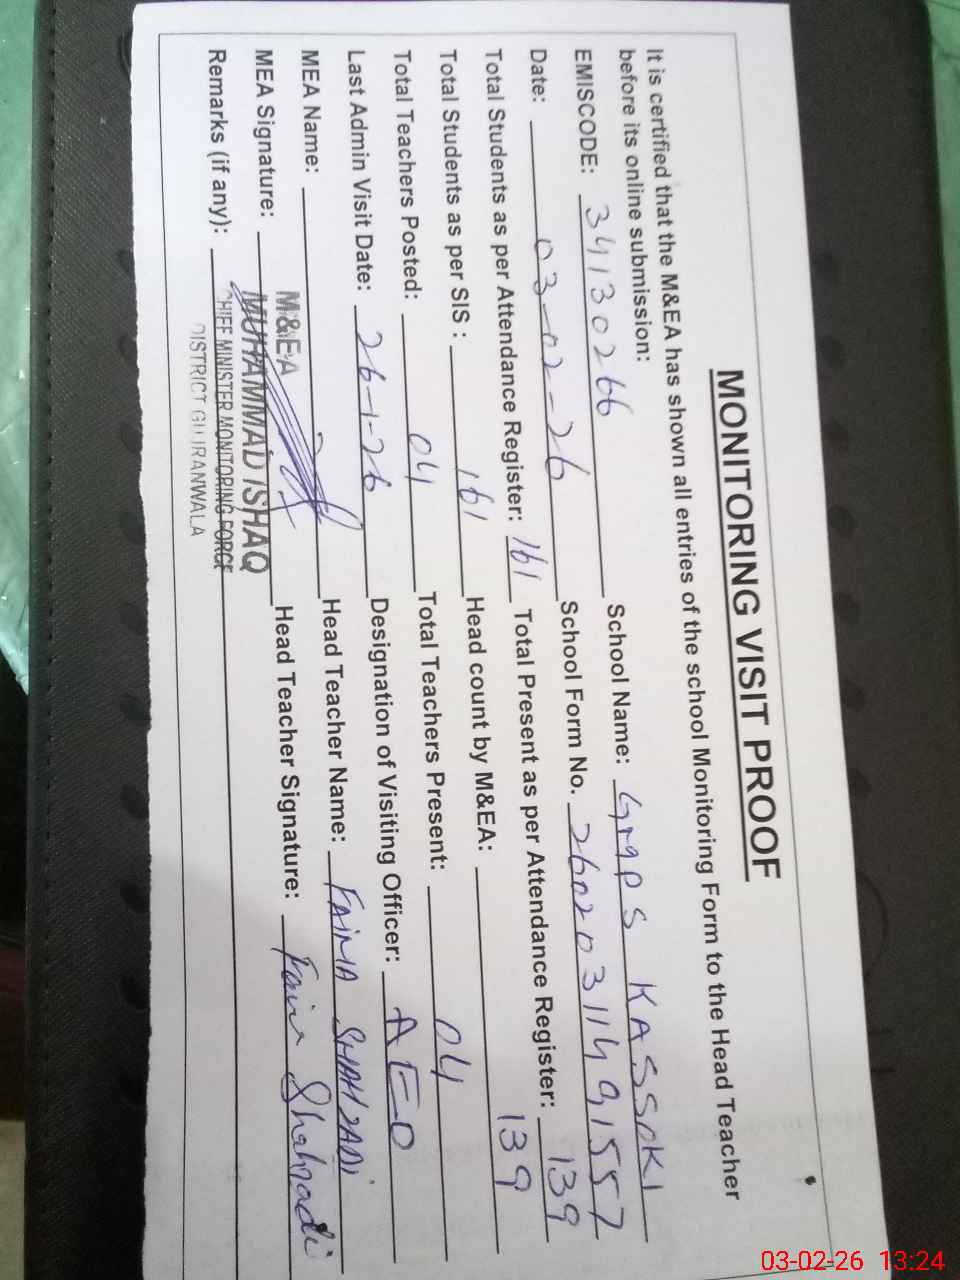 MONITORING VISIT PROOF
It is certified that the M&EA has shown all entries of the school Monitoring Form to the Head Teacher
before its online submission:
EMISCODE: 34130266 School Name: GMPS KASSOKI
Date: 03-02-26 School Form No. 26020311491557
Total Students as per Attendance Register: 161 Total Present as per Attendance Register: 139
Total Students as per SIS : 161 Head count by M&EA: 139
Total Teachers Posted: 04 Total Teachers Present: 04
Last Admin Visit Date: 26-1-26 Designation of Visiting Officer: AEO
MEA Name: Head Teacher Name: FAIMA SHAHZADI
MEA Signature: Head Teacher Signature: Shahzadi
Remarks (if any):
M&EA
MUHAMMAD ISHAQ
CHIEF MINISTER MONITORING FORCE
DISTRICT GUJRANWALA
03-02-26 13:24